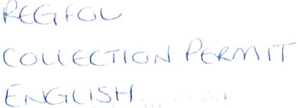 REGFOL
COLLECTION PERMIT
ENGLISH